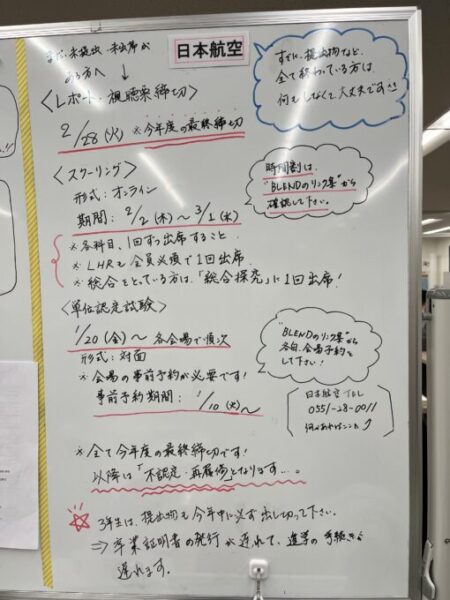 まだ、未提出、未出席が
ある方へ ↓
日本航空
すでに、提出物など、
全て終わっている方は、
何もしなくて大丈夫です
<レポート、視聴票締切>
2/28(火) ※今年度の最終締切
<スクーリング>
形式：オンライン
期間：2/2(木)～3/1(水)
時間割は、
"BLENDのリンク集"から
確認して下さい。
※各科目、1回ずつ出席すること
※LHRも全員必須で1回出席
※総合をとっている方は、「総合探究」に1回出席!
<単位認定試験>
1/20(金)～各会場で順次
形式：対面
※会場の事前予約が必要です!
事前予約期間：1/10(火)～
"BLENDのリンク集"から
各自、会場予約を
して下さい!
日本航空TEL
0551-28-0011
何かあればココ
※全て今年度の最終締切です!
以降は「不認定・再履修」となります...。
☆3年生は、提出物も今年中に必ず出し切って下さい。
⇒卒業証明書の発行が遅れて、進学の手続きも
遅れます。